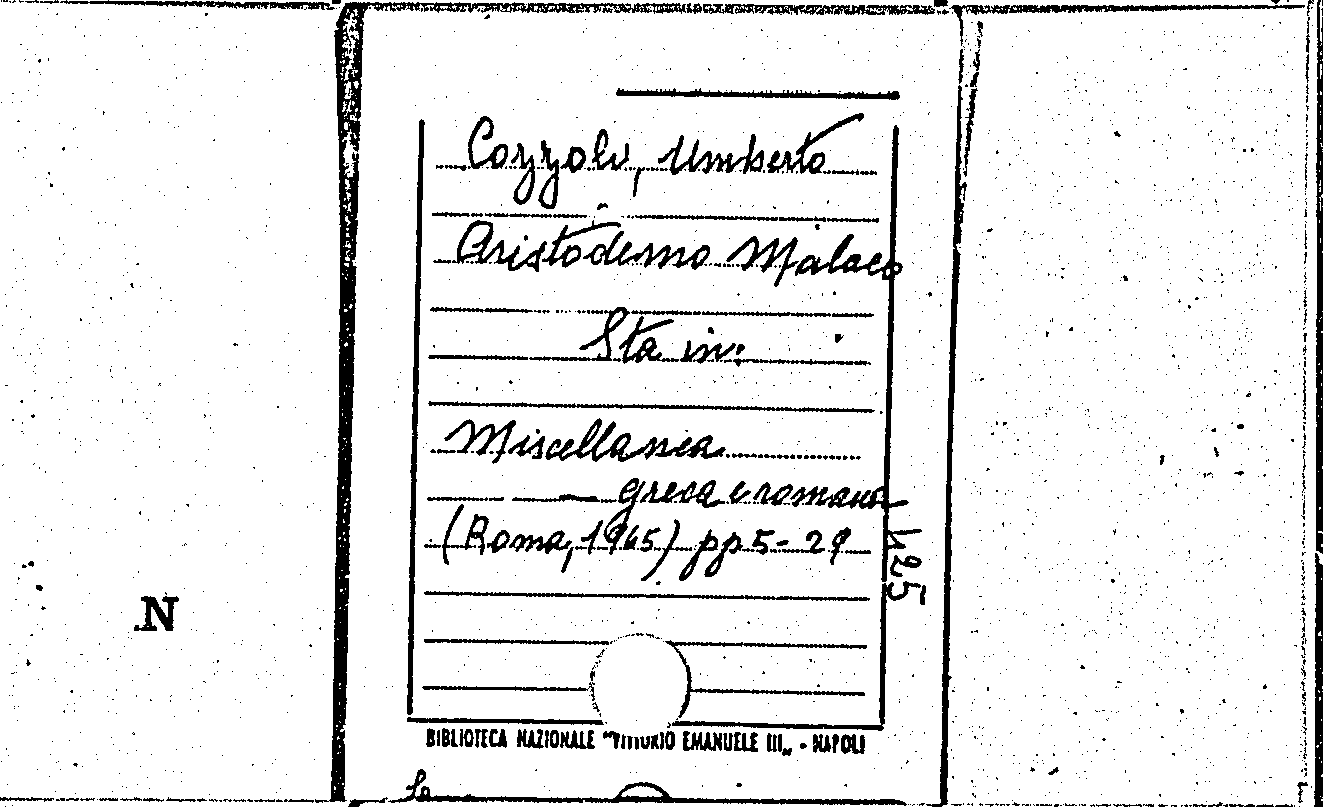 Cozzoli, Umberto
Aristodemo Malaco
Sta in:
Miscellanea
— greca e romana
(Roma, 1965) pp 5-29
425
N
BIBLIOTECA NAZIONALE "VITTORIO EMANUELE III„ - NAPOLI